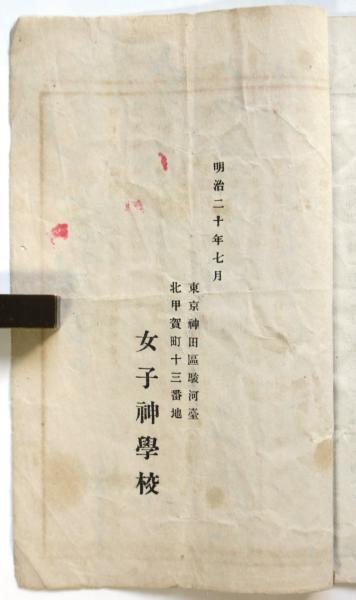 明治二十年七月
東京神田區駿河臺
北甲賀町十三番地
女子神學校